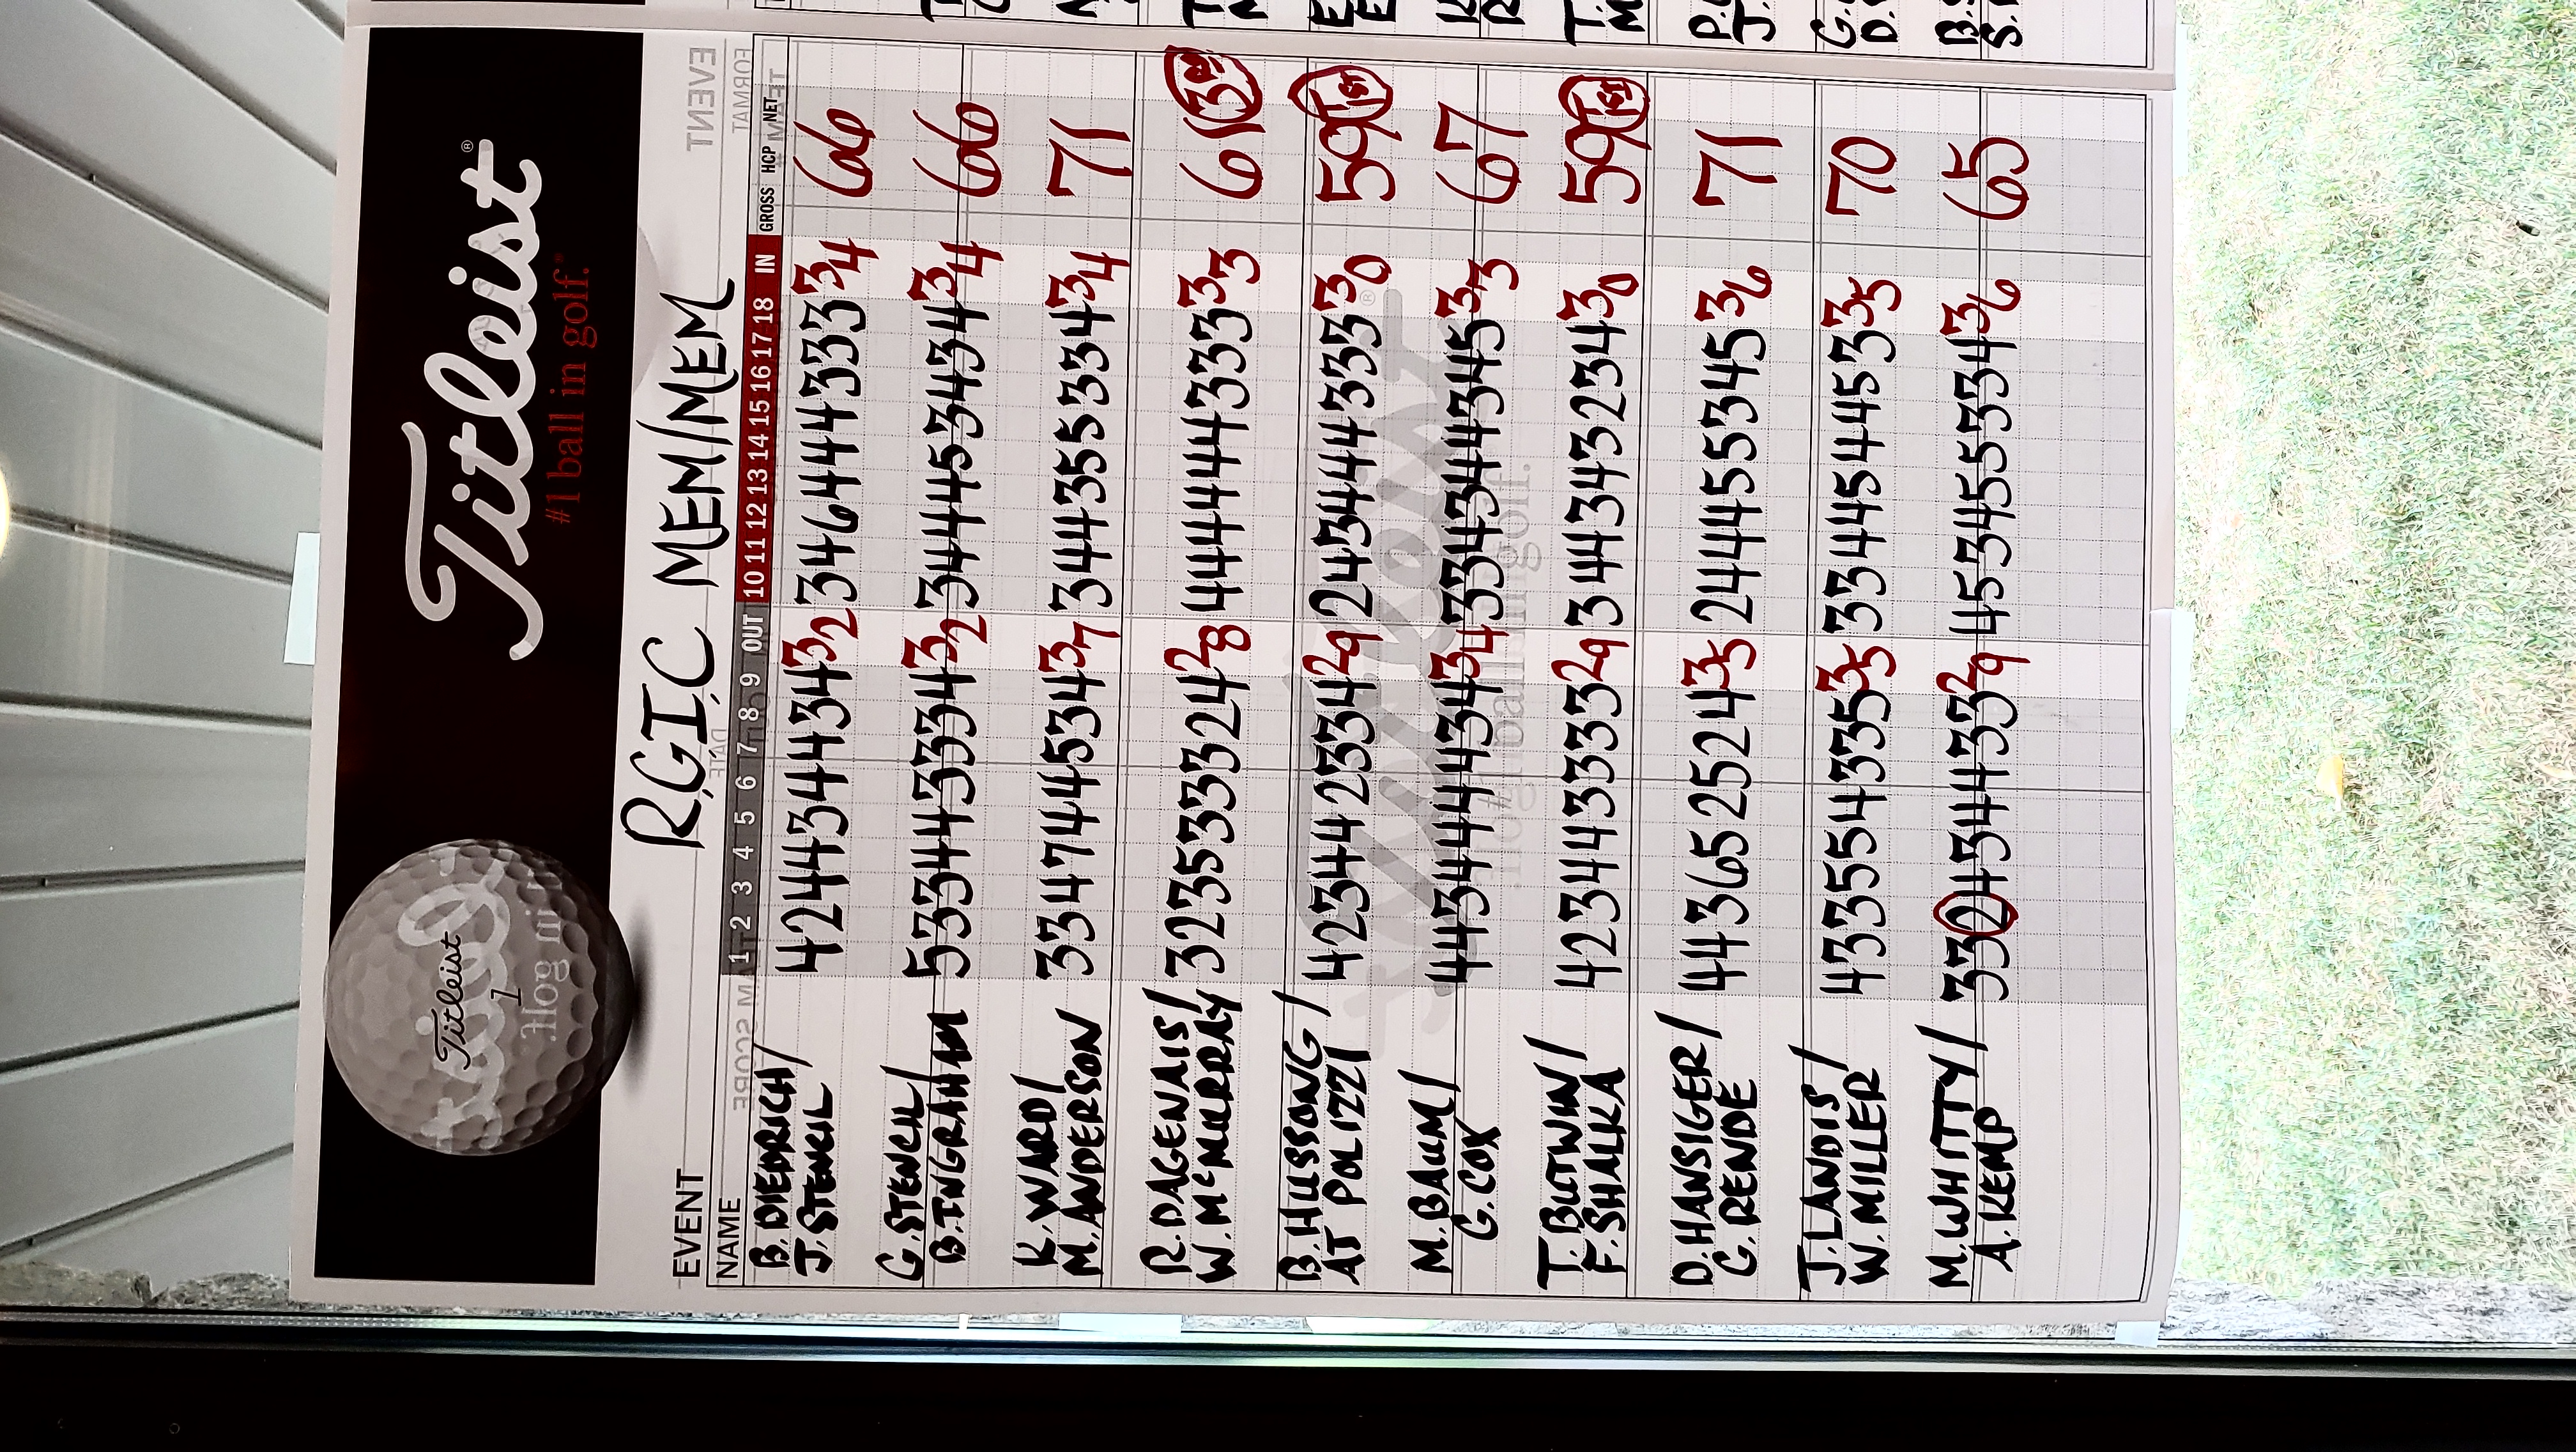 Titleist®
#1 ball in golf.®
Titleist
1
EVENT RGIC MEM/MEM
NAME 1 2 3 4 5 6 7 8 9 OUT 10 11 12 13 14 15 16 17 18 IN GROSS HCP NET
B. DIEDRICH/
J. STENCIL 424434434 32 346444333 34 66
G. STENCIL/
B. INGRAHAM 533443334 32 344453434 34 66
K. WARD/
M. ANDERSON 334744534 37 344355334 34 71
R. DAGENAIS/
W. McMURRAY 323533324 28 444444333 33 61 3RD
B. HUSSONG/
AT POLIZZI 423442334 29 243444333 30 59 T1ST
M. BAUM/
G. COX 443444434 34 334344345 33 67
T. BUTWIN/
F. SHALKA 423443333 29 344343234 30 59 T1ST
D. HANSIGER/
G. RENDE 443652524 35 244455345 36 71
J. LANDIS/
W. MILLER 433554335 35 334454453 35 70
M. WHITTY/
A. KEMP 332434433 29 453455334 36 65